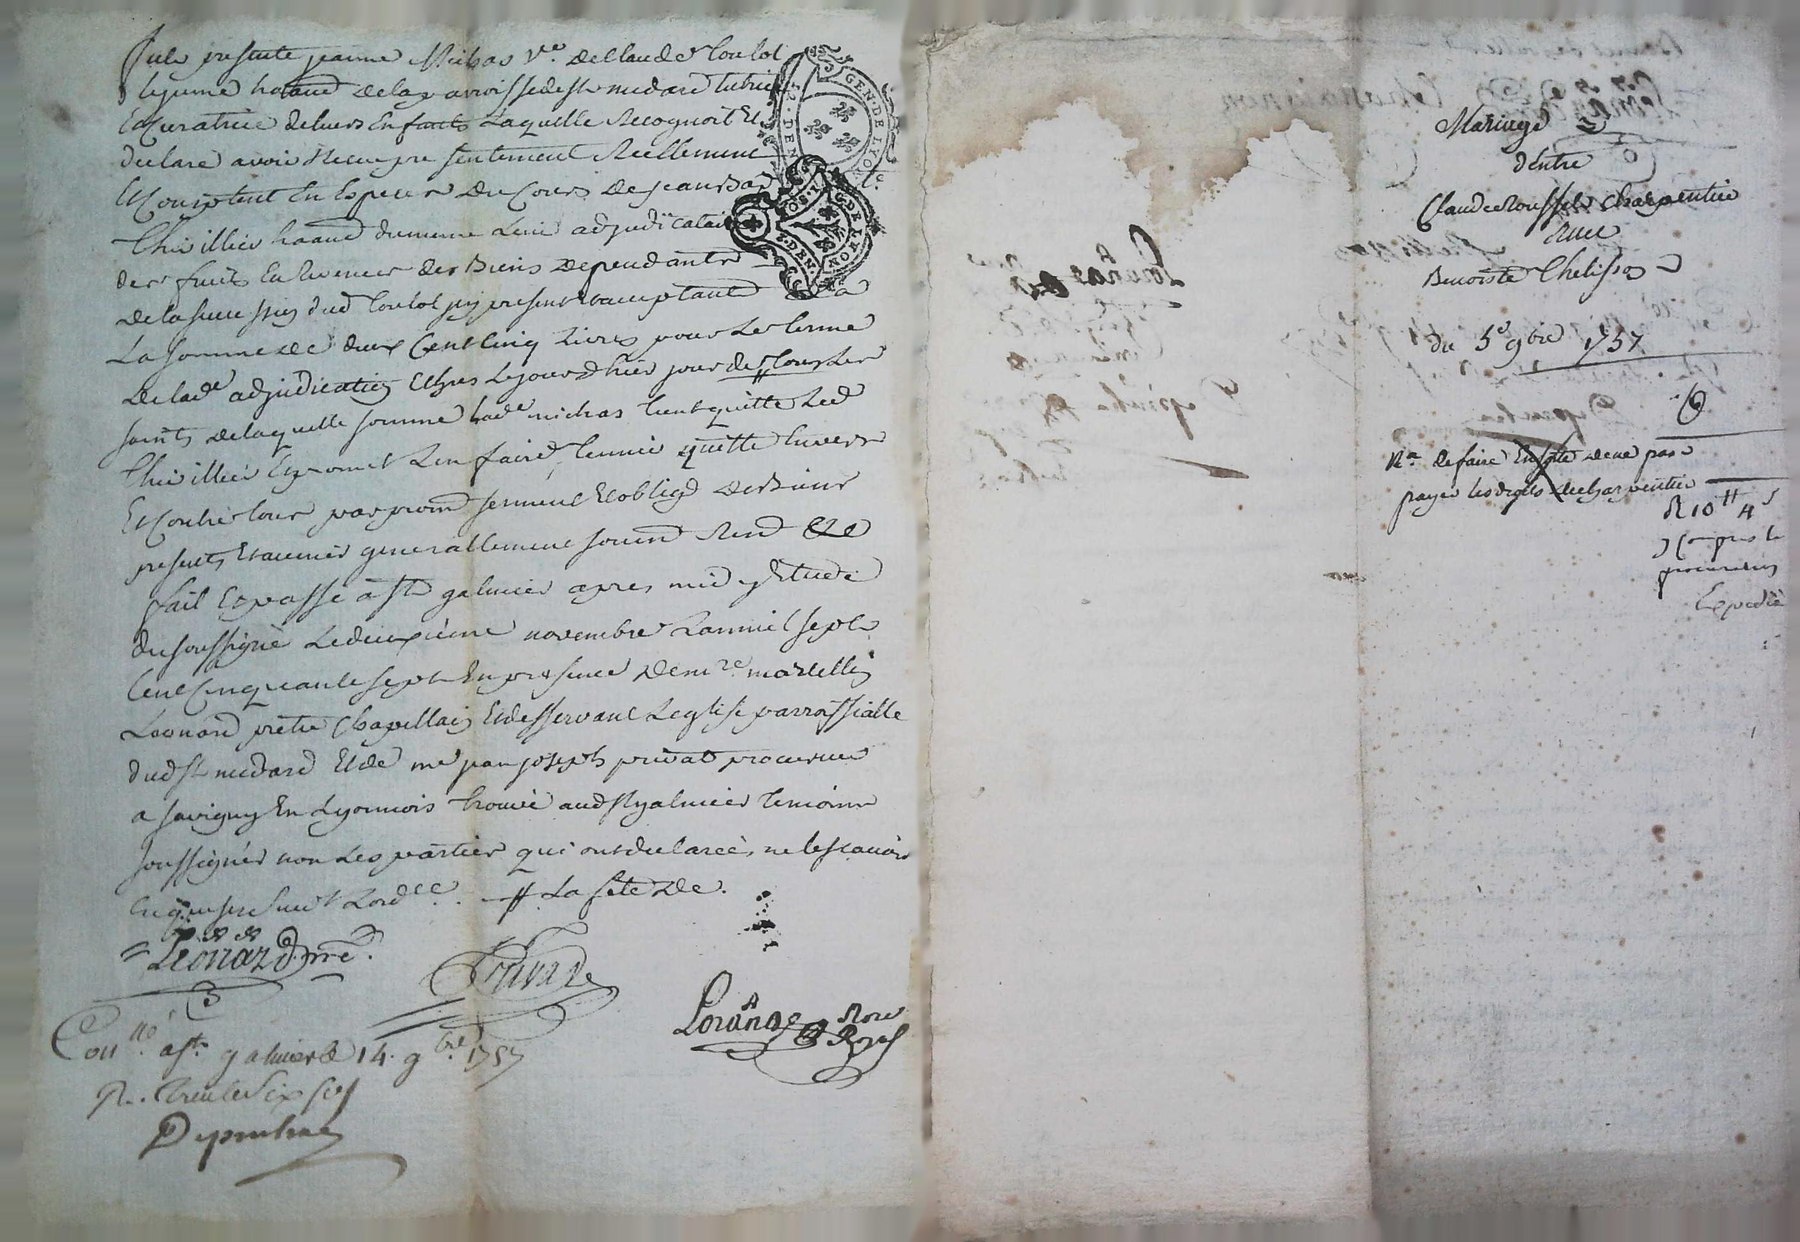 Fut presente jeanne Michas Ve. de Claude Coulol
le jeune habitt de la parroisse de st medard tutrice
Et Curatrice de leurs Enfants Laquelle Recognoit Et
declare avoir Recu presentement Reellement
Et Comptent En Especes du Cours de jean Bap
Thivillier habitt du meme Lieu adjudicatai
des fruits En Revenus des Biens dependants
de la succession dud Coulol icy present acceptant
La somme de deux Cent Cinq Livres pour Le terme
de lade adjudication Echus Le jour d'hier jour de // tous Les
saints de laquelle somme lade michas tient quitte Led
Thivillier Et promet L'en faire tenir quitte Envers
Et Contre tous par prom serment Et oblig de Biens
presents Et avenir generallement soum Ren &a
fait Et passé a st galmier apres midy Etude
du soussigné Le deuxieme novembre L'an mil sept
Cent Cinquante sept En presence de mre. martellin
Leonard pretre Chapellain Et desservant L'eglise parroissialle
dud st medard Et de me jean joseph privat procureur
a savigny En Lyonnois trouvé aud st galmier temoins
soussignés non Les parties qui ont declarées ne le scavoir
Enquis suivt L'ordce. // La fete de.
Leonard pre.
Privat
Loranas Nore Royal
Conllé. a st. galmier le 14. 9bre 1757
R. Trente Six sols
GEN. DE LYON
2. DEN
Mariage
d'Entre
Claude Roussel Charpentier
avec
Benoiste Chelisson
du 5e 9bre 1757
Na. de faire En sorte de ne pas
payer les droits de charpentier
R 10 tt 4 s
y Compris la
procuration
Expedié